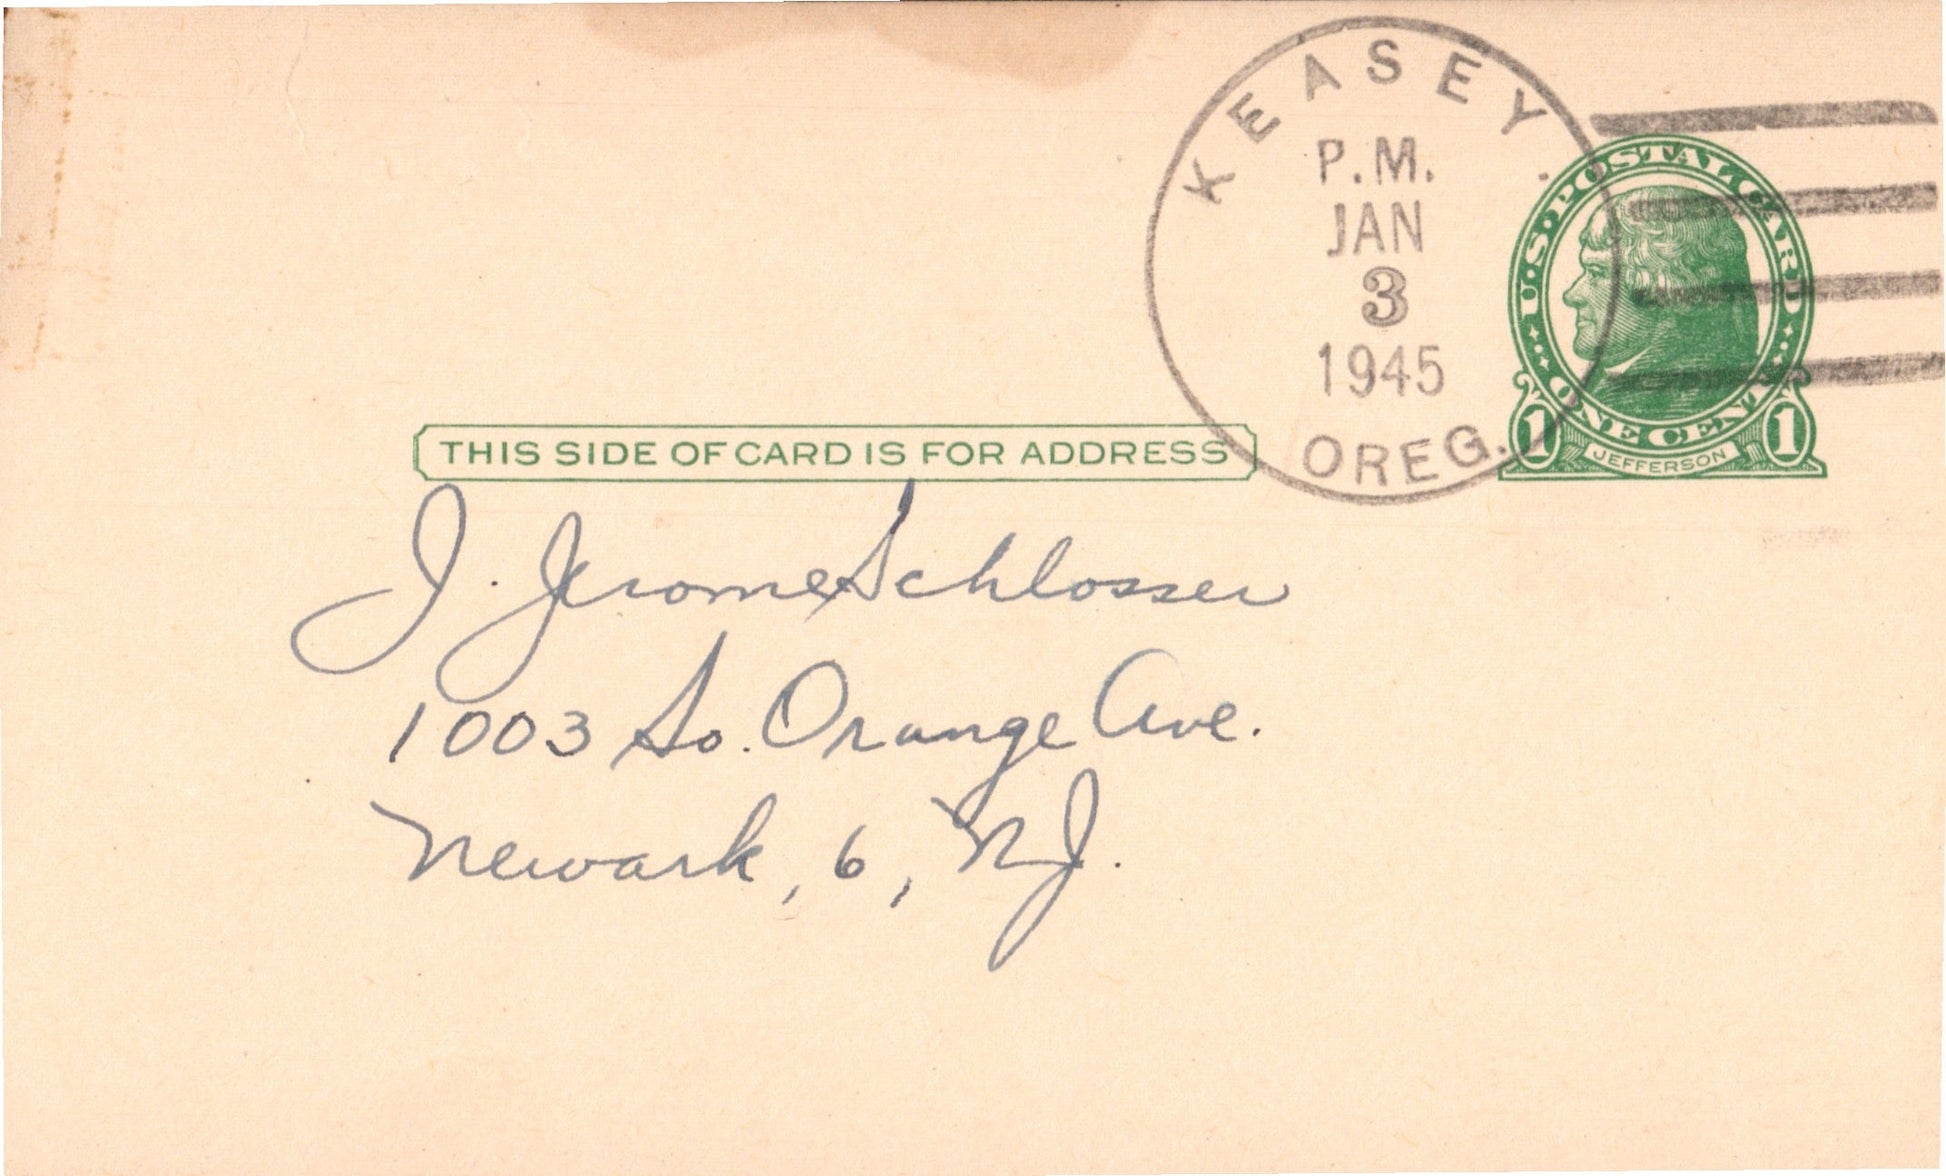 KEASEY.
P.M.
JAN
3
1945
OREG.
U.S. POSTAL CARD
ONE CENT
1 JEFFERSON 1
THIS SIDE OF CARD IS FOR ADDRESS
J. Jerome Schlosser
1003 So. Orange Ave.
Newark, 6, N.J.